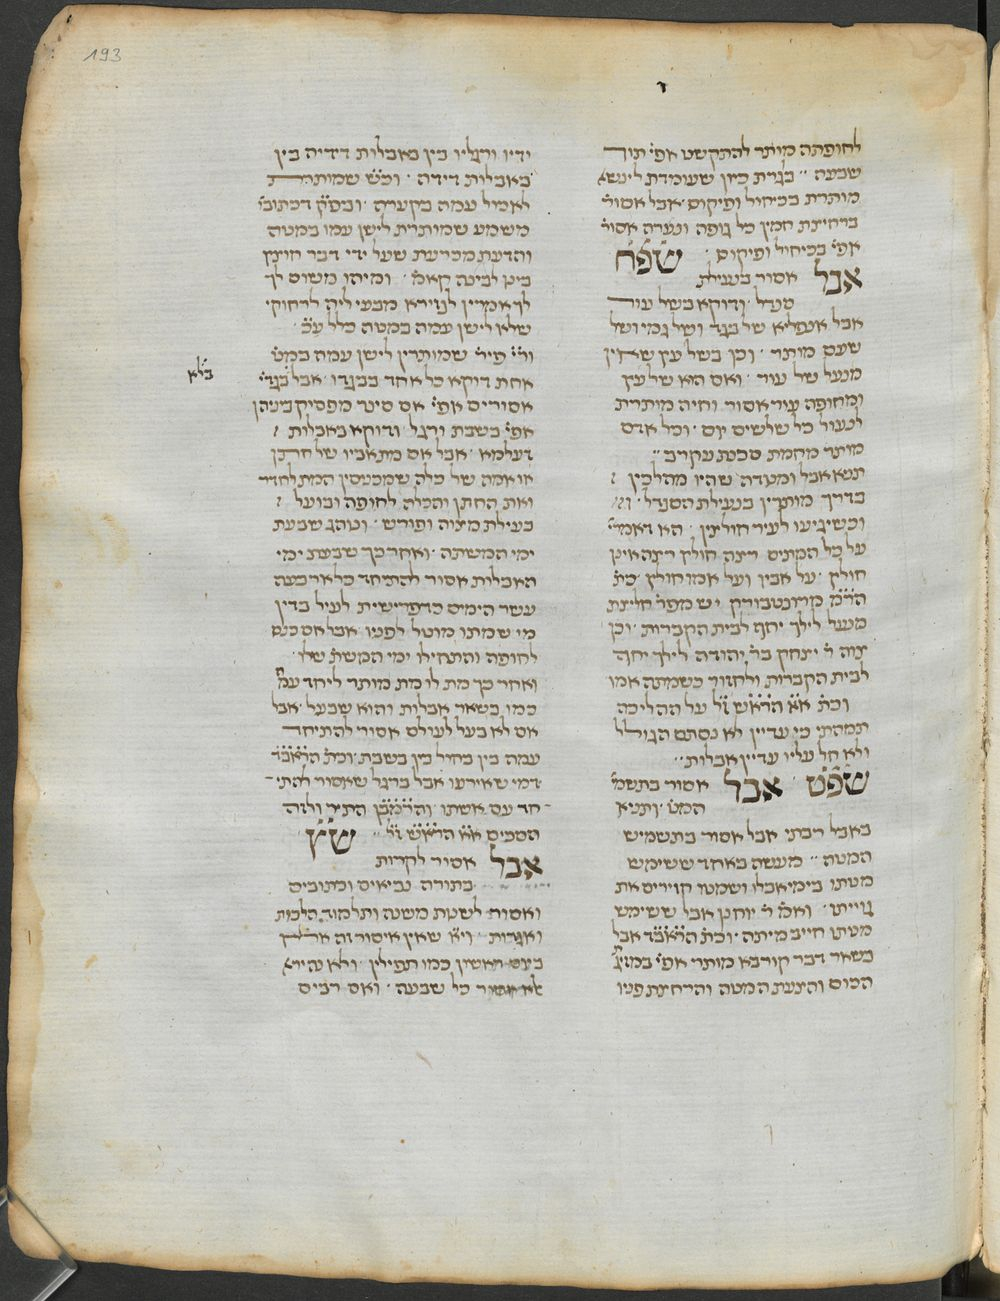 193
לחופתה מותר להתקשט אפי׳ תוך
שבעה ׳׳ בגרת כיון שעומדת לינשא
מותרת בכיחול ופיקוס ׳ אבל אסור׳
ברחיצת חמין כל גופה ונערה אסור׳
אפי׳ בכיחול ופיקוס ׳ שפ״ח
אבל אסור בנעילת
סנדל ׳ ודוקא בשל עור
אבל אנפליא של בגד ושל גמי ושל
שעם מותר ׳ וכן בשל עץ שאין
מנעל של עור ׳ ואם הוא של עץ
ומחופה עור אסור ׳ וחיה מותרת
לנעול כל שלשים יום ׳ וכל אדם
מותר מחמת סכנת עקרב ׳׳
תנא אבל ומנדה שהיו מהלכין
בדרך מותרין בנעילת הסנדל ׳
וכשיגיעו לעיר חולצין ׳ הא דאמרי׳
על כל המתים רצה חולץ רצה אינו
חולץ ׳ על אביו ועל אמו חולץ ׳ כת׳
הר״מ מרוטנבורק יש מפר׳ חליצת
מנעל לילך יחף לבית הקברות ׳ וכן
צוה ר׳ יצחק בר׳ יהודה לילך יחף
לבית הקברות ולחזור כשמתה אמו
וכת׳ א״א הרא״ש ז״ל על ההליכה
תמהתי כי עדיין לא נסתם הגולל
ולא חל עליו עדיין אבלות ׳׳
שפ״ט ׳ אבל אסור בתשמי׳
המט׳ ׳ ותניא
באבל רבתי אבל אסור בתשמיש
המטה ׳׳ מעשה באחד ששימש
מטתו בימי אבלו ושמטו חזירים את
גוייתו ׳ ואמ׳ ר׳ יוחנן אבל ששימש
מטתו חייב מיתה ׳ וכת׳ הראב״ד אבל
בשאר דבר קורבא מותר אפי׳ במזיג׳
הכוס והצעת המטה והרחצת פניו
ידיו ורגליו בין באבלות דידיה בין
באבלות דידה ׳ וכ״ש שמותרת
לאכול עמה בקערה ׳ ובפ״ק דכתובי׳
משמע שמותרת לישן עמו במטה
והדעת מכרעת שעל ידי דבר חוצץ
בינו לבינה קאמ׳ ׳ ומיהו משום לך
לך אמרין לנזירא מבעי ליה לרחוקי
שלא לישן עמה במטה כלל ע״כ ׳
ור״י פיר׳ שמותרין לישן עמה במט׳
אחת דוקא כל אחד בבגדו ׳ אבל בגדי׳
בלא
אסורים אפי׳ אם סינר מפסיק ביניהן
אפי׳ בשבת ורגל ׳ ודוקא באבלות
דעלמא ׳ אבל אם מת אביו של חתן
או אמה של כלה שמכניסין המת לחדר
ואת החתן והכלה לחופה ובועל
בעילת מצוה ופורש ׳ ונוהג שבעת
ימי המשתה ׳ ואחר כך שבעת ימי
האבלות אסור להתיחד כל ארבעה
עשר הימים כדפרישית לעיל בדין
מי שמתו מוטל לפניו ׳ אבל אם כנס
לחופה והתחילו ימי המשת׳ שלו ׳
ואחר כך מת לו מת מותר ליחד עמ׳
כמו בשאר אבלות והוא שבעל ׳ אבל
אם לא בעל לעולם אסור להתיחד
עמה בין בחול בין בשבת ׳ וכת׳ הראב״ד
דמי שאירעו אבל ברגל שאסור להתי־
־חד עם אשתו ׳ והרמב״ן התיר ולזה
הסכים א״א הרא״ש ז״ל ׳׳ ש״ץ
אבל אסור לקרות
בתורה נביאים וכתובים
ואסור לשנות משנה ותלמוד הלכות
ואגדות ׳ וי״א שאין איסור זה אלא
ביום ראשון כמו תפילין ׳ ולא נהירא
אלא אסור כל שבעה ׳ ואם רבים